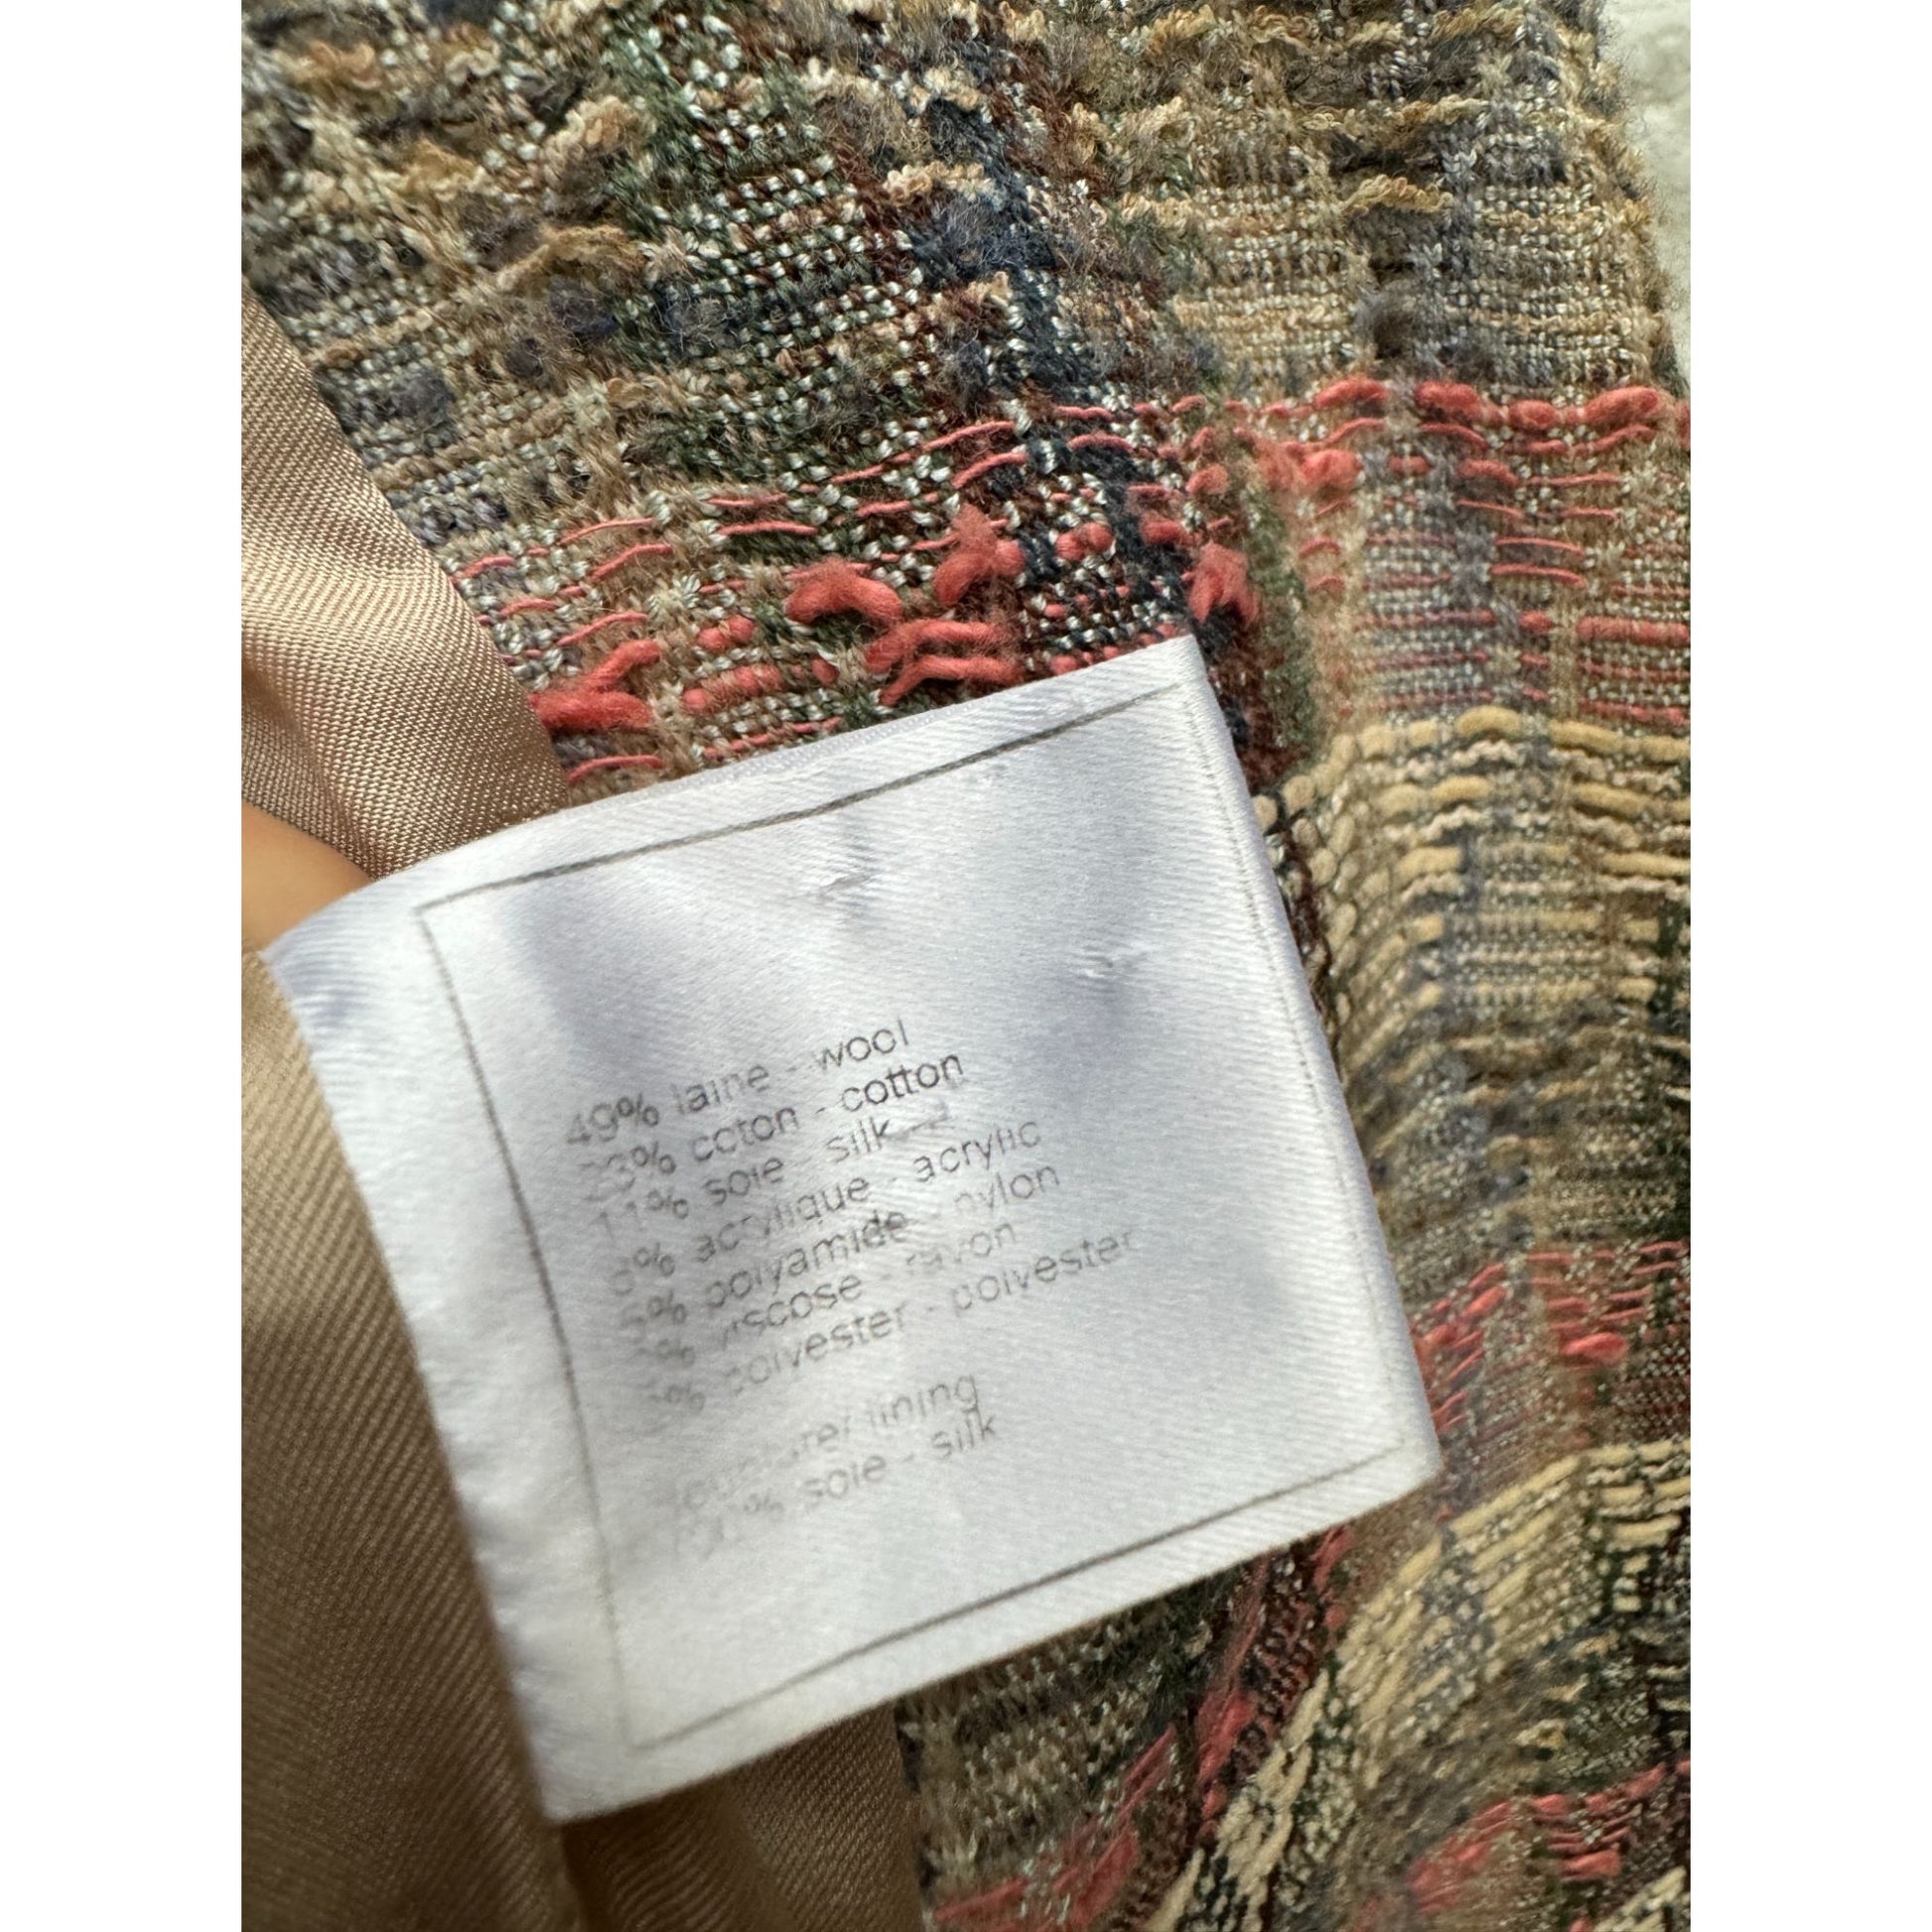 49% laine - wool
23% coton - cotton
11% soie - silk
acrylique - acrylic
5% polyamide - nylon
viscose - rayon
polyester - polyester
lining
soie - silk